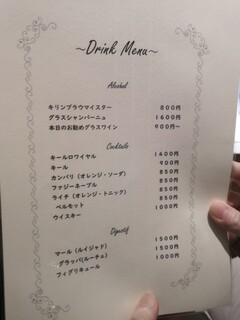 ~Drink Menu~
Alcohol
キリンブラウマイスター 800円
グラスシャンパーニュ 1600円
本日のお勧めグラスワイン 900円~
Cocktails
キールロワイヤル 1400円
キール 900円
カンパリ(オレンジ・ソーダ) 850円
ファジーネーブル 850円
ライチ(オレンジ・トニック) 850円
ベルモット 850円
ウイスキー 1000円
Digestif
マール(ルイジャド) 1500円
グラッパ(ルーチェ) 1500円
フィグリキュール 1000円